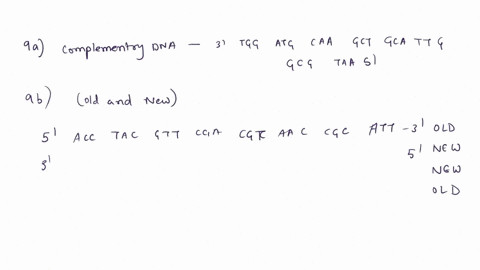 9a) Complementry DNA — 3' TGG ATG CAA GCT GCA TTG
GCG TAA 5'
9b) (old and New)
5' ACC TAC GTT CGA CGT AAC CGC ATT -3' OLD
3' 5' NEW
NEW
OLD